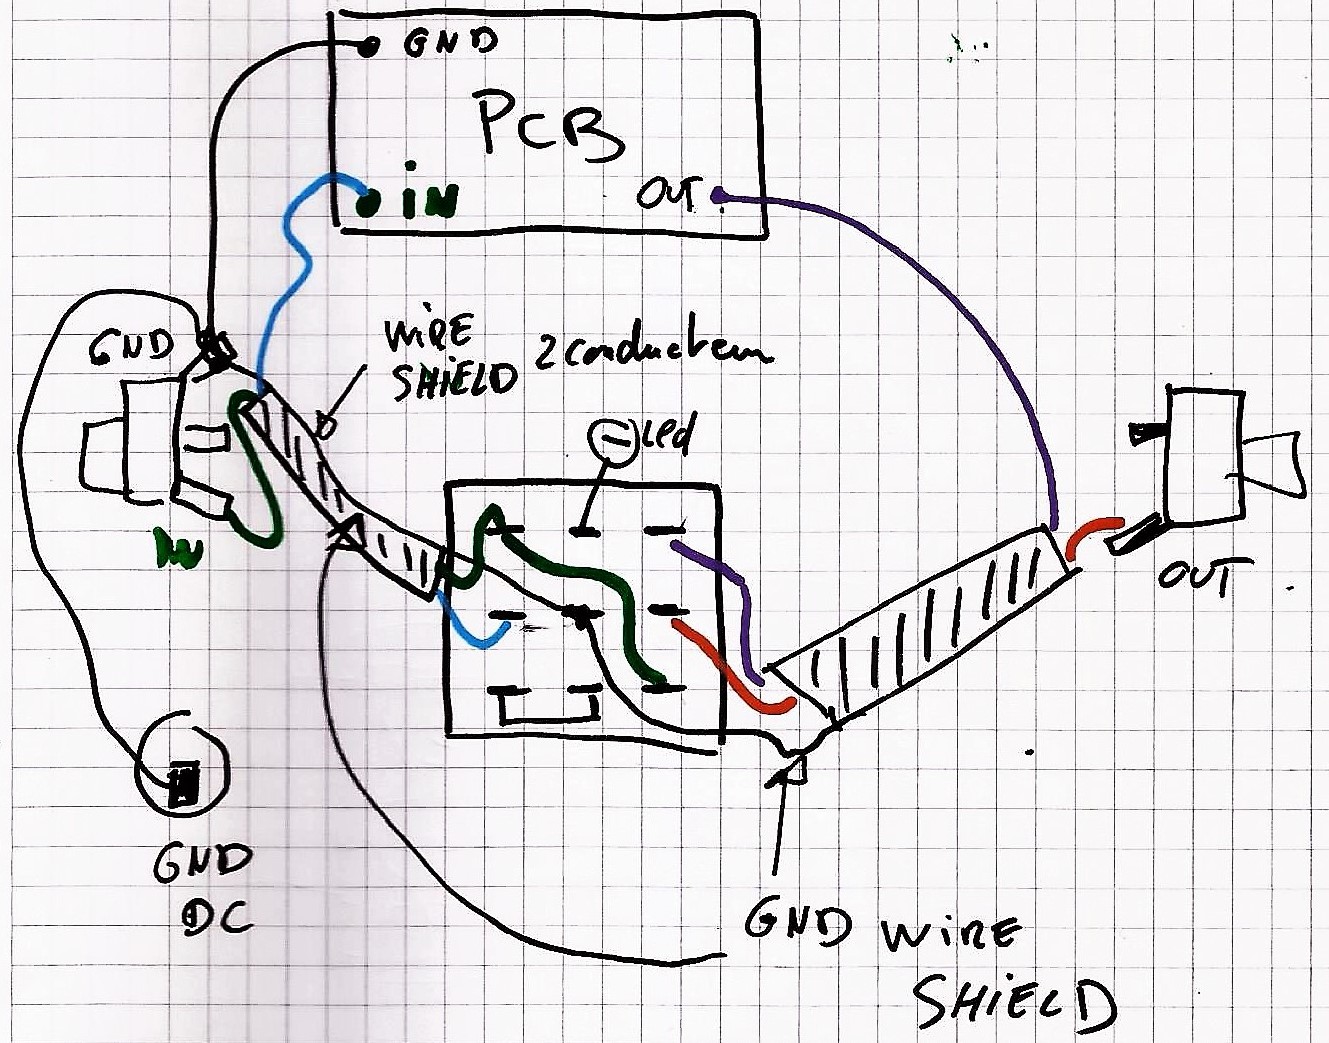 GND
PCB
iN
OUT
GND
WiRE
SHiELD 2 conducteur
Led
iN
OUT
GND
DC
GND WiRE
SHiELD